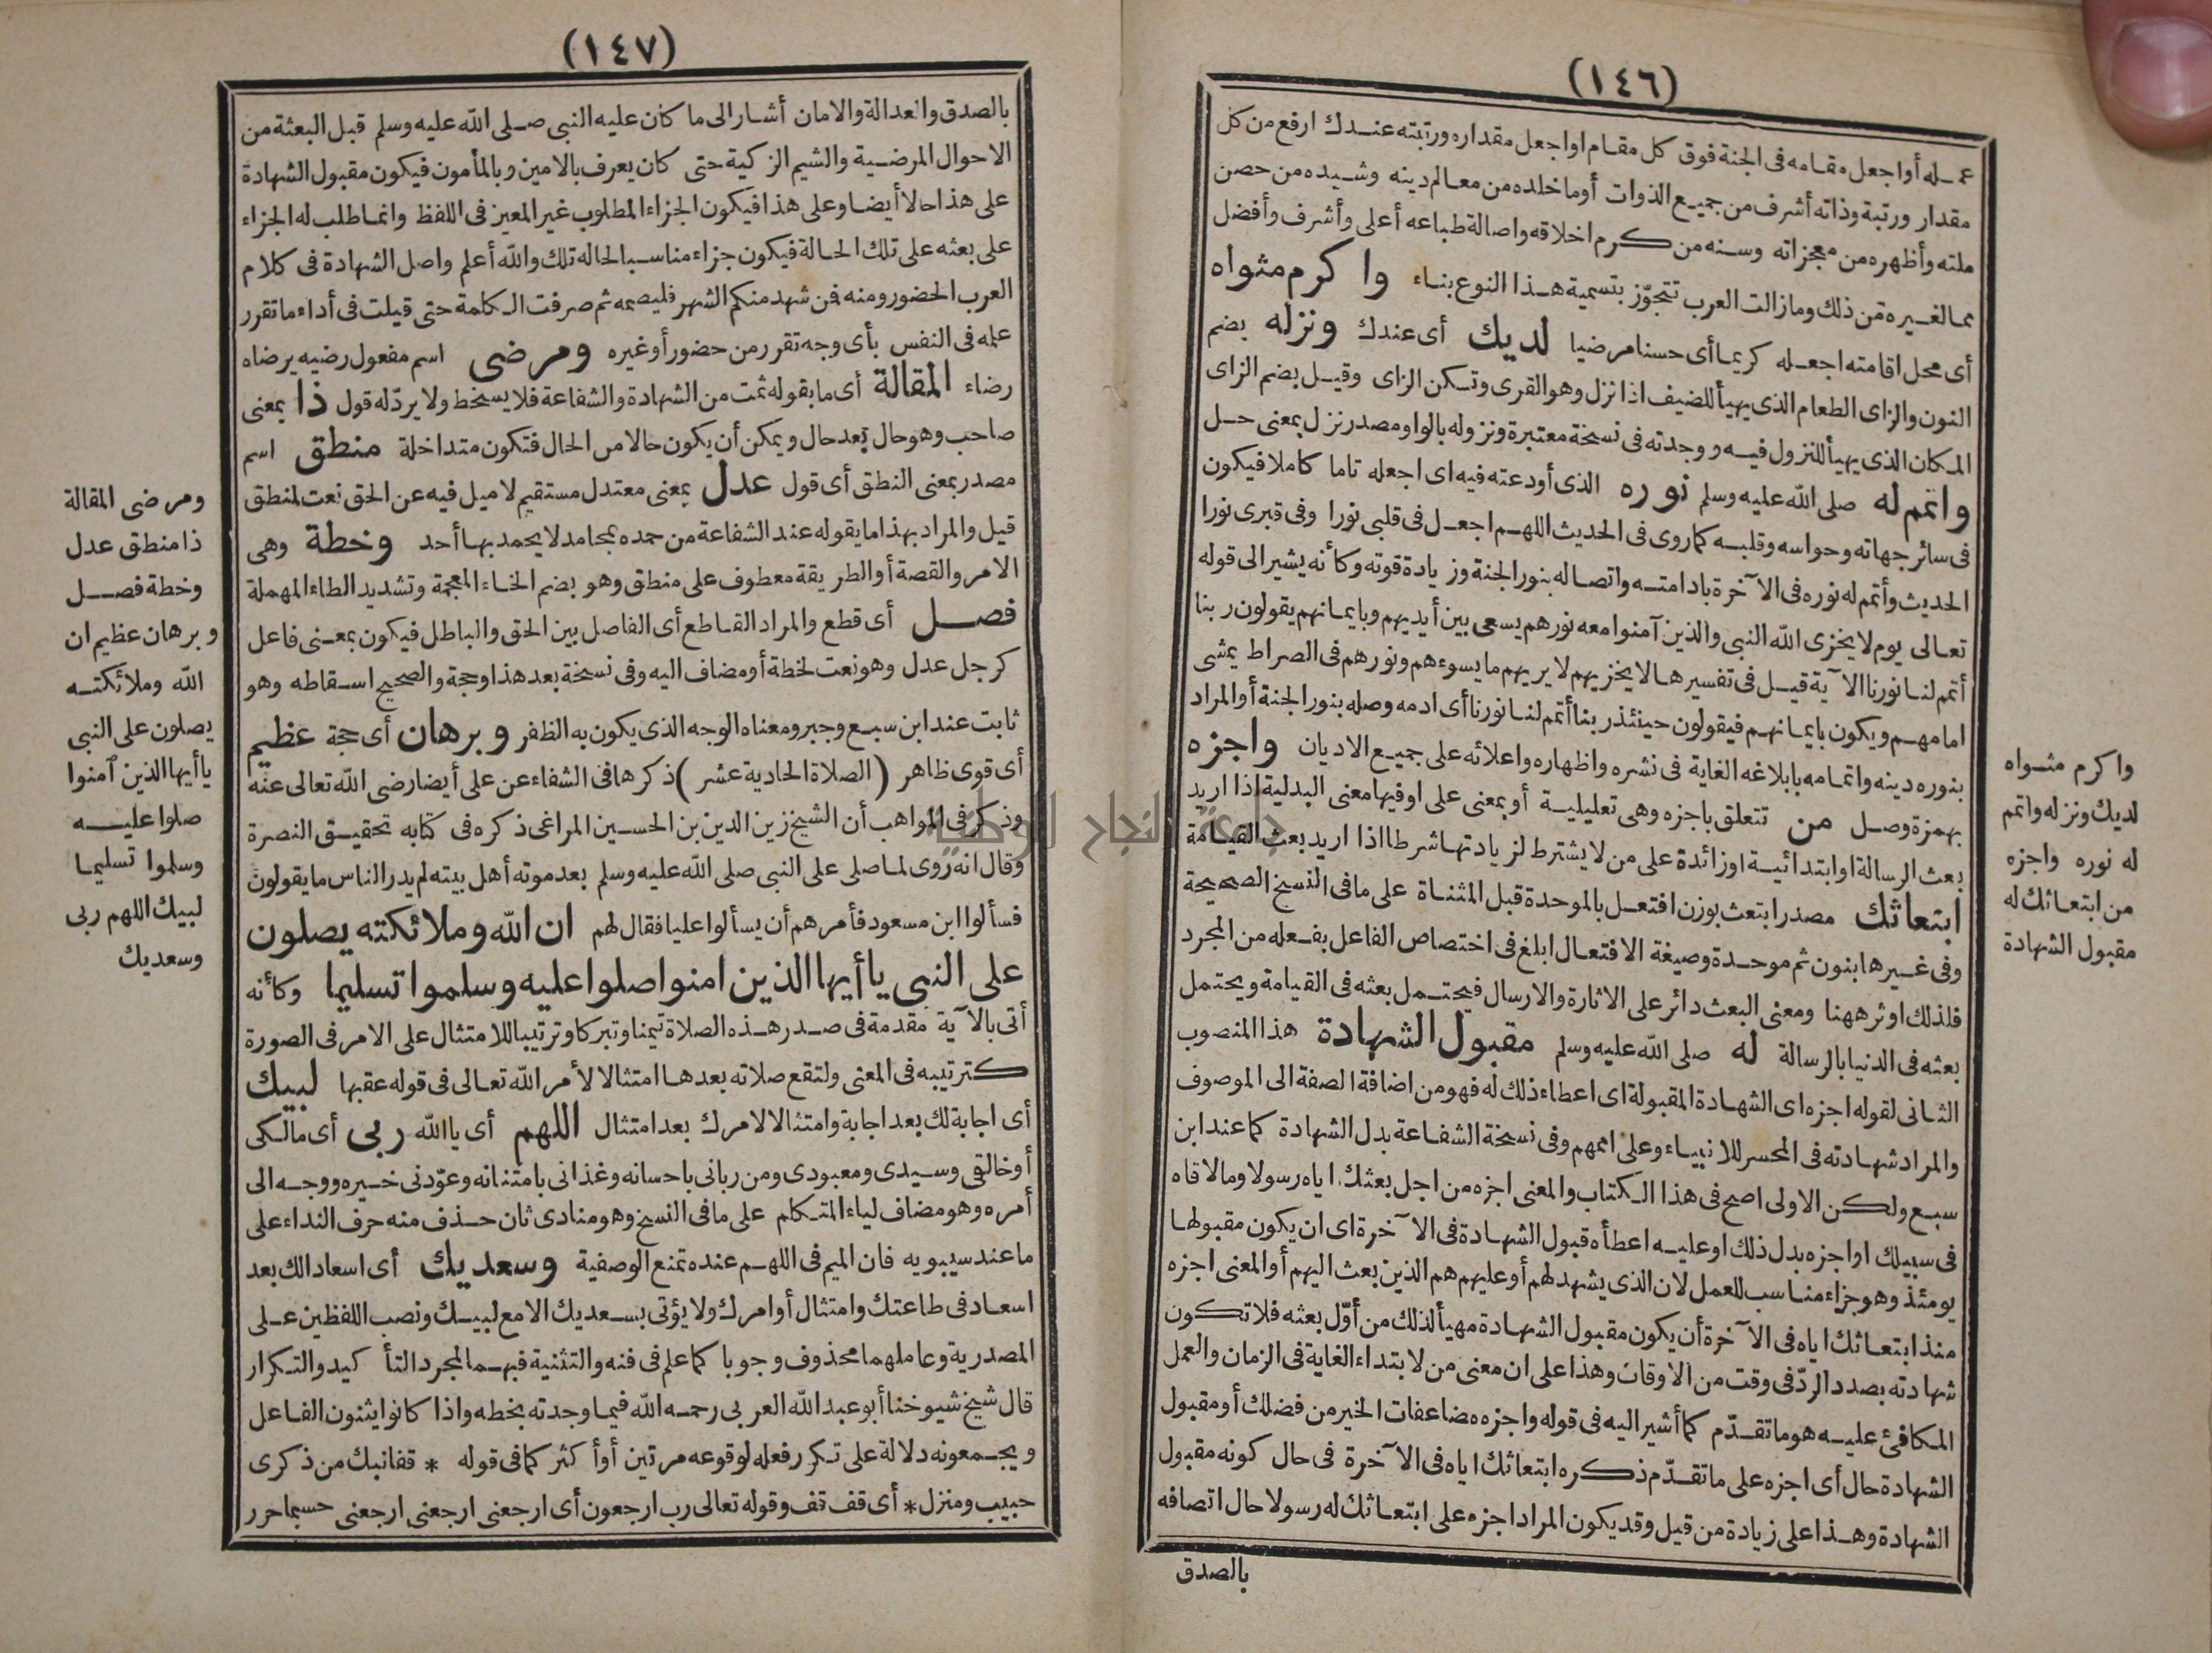 (١٤٦)
عمله أو اجعل مقامه فى الجنة فوق كل مقام او اجعل مقداره ورتبته عندك ارفع من كل
مقدار ورتبة وذاته أشرف من جميع الذوات أو ما خلده من معالم دينه وشيده من حصن
ملته وأظهره من معجزاته وسنه من كرم اخلاقه واصالة طباعه أعلى وأشرف وأفضل
مما لغيره من ذلك وما زالت العرب تتجوّز بتسمية هذا النوع بناء وا كرم مثواه
أى محل اقامته اجعله كريما أى حسنا مرضيا لديك أى عندك ونزله بضم
النون والزاى الطعام الذى يهيأ للضيف اذا نزل وهو القرى وتسكن الزاى وقيل بضم الزاى
المكان الذى يهيأ للنزول فيه ووجدته فى نسخة معتبرة ونزوله بالواو مصدر نزل بمعنى حل
واتمم له صلى الله عليه وسلم نوره الذى أودعته فيه اى اجعله تاما كاملا فيكون
فى سائر جهاته وحواسه وقلبه كما روى فى الحديث اللهم اجعل فى قلبى نورا وفى قبرى نورا
الحديث وأتمم له نوره فى الآخرة بادامته واتصاله بنور الجنة وزيادة قوته وكأنه يشير الى قوله
تعالى يوم لا يخزى الله النبى والذين آمنوا معه نورهم يسعى بين أيديهم وبايمانهم يقولون ربنا
أتمم لنا نورنا الآية قيل فى تفسيرها لا يخزيهم لا يريهم ما يسوءهم ونورهم فى الصراط يمشى
امامهم ويكون بايمانهم فيقولون حينئذ ربنا أتمم لنا نورنا أى ادمه وصله بنور الجنة أو المراد
بنوره دينه واتمامه بابلاغه الغاية فى نشره واظهاره واعلائه على جميع الاديان واجزه
بهمزة وصل من تتعلق باجزه وهى تعليلية أو بمعنى على او فيها معنى البدلية اذا اريد
بعث الرسالة او ابتدائية او زائدة على من لا يشترط لزيادتها شرطا اذا اريد بعث القيامة
ابتعاثك مصدر ابتعث بوزن افتعل بالموحدة قبل المثناة على ما فى النسخ الصحيحة
وفى غيرها بنون ثم موحدة وصيغة الافتعال ابلغ فى اختصاص الفاعل بفعله من المجرد
فلذلك اوثر ههنا ومعنى البعث دائر على الاثارة والارسال فيحتمل بعثه فى القيامة ويحتمل
بعثه فى الدنيا بالرسالة له صلى الله عليه وسلم مقبول الشهادة هذا المنصوب
الثانى لقوله اجزه اى الشهادة المقبولة اى اعطاء ذلك له فهو من اضافة الصفة الى الموصوف
والمراد شهادته فى المحسر للانبياء وعلى اممهم وفى نسخة الشفاعة بدل الشهادة كما عند ابن
سبع ولكن الاولى اصح فى هذا الكتاب والمعنى اجزه من اجل بعثك اياه رسولا وما لاقاه
فى سبيلك او اجزه بدل ذلك او عليه اعطأه قبول الشهادة فى الآخرة اى ان يكون مقبولها
يومئذ وهو جزاء مناسب للعمل لان الذى يشهد لهم أو عليهم هم الذين بعث اليهم أو المعنى اجزه
منذ ابتعاثك اياه فى الآخرة أن يكون مقبول الشهادة مهيأ لذلك من أوّل بعثه فلا تكون
شهادته بصدد الردّ فى وقت من الاوقات وهذا على ان معنى من لابتداء الغاية فى الزمان والعمل
المكافئ عليه هو ما تقدّم كما أشير اليه فى قوله واجزه مضاعفات الخير من فضلك أو مقبول
الشهادة حال أى اجزه على ما تقدّم ذكره ابتعاثك اياه فى الآخرة فى حال كونه مقبول
الشهادة وهذا على زيادة من قيل وقد يكون المراد اجزه على ابتعاثك له رسولا حال اتصافه
بالصدق
وا كرم مثواه
لديك ونزله واتمم
له نوره واجزه
من ابتعاثك له
مقبول الشهادة
(١٤٧)
بالصدق والعدالة والامان أشار الى ما كان عليه النبى صلى الله عليه وسلم قبل البعثة من
الاحوال المرضية والشيم الزكية حتى كان يعرف بالامين وبالمأمون فيكون مقبول الشهادة
على هذا حالا أيضا وعلى هذا فيكون الجزاء المطلوب غير المعين فى اللفظ وانما طلب له الجزاء
على بعثه على تلك الحالة فيكون جزاء مناسبا لحاله تلك والله أعلم واصل الشهادة فى كلام
العرب الحضور ومنه فمن شهد منكم الشهر فليصمه ثم صرفت الكلمة حتى قيلت فى أداء ما تقرر
علمه فى النفس بأى وجه تقرر من حضور أو غيره ومرضى اسم مفعول رضيه يرضاه
رضاء المقالة أى ما يقوله ثمت من الشهادة والشفاعة فلا يسخط ولا يردّ له قول ذا بمعنى
صاحب وهو حال بعد حال ويمكن أن يكون حالا من الحال فتكون متداخلة منطق اسم
مصدر بمعنى النطق أى قول عدل بمعنى معتدل مستقيم لا ميل فيه عن الحق نعت لمنطق
قيل والمراد بهذا ما يقوله عند الشفاعة من حمده بمحامد لا يحمد بها أحد وخطة وهى
الامر والقصة أو الطريقة معطوف على منطق وهو بضم الخاء المعجمة وتشديد الطاء المهملة
فصل أى قطع والمراد القاطع أى الفاصل بين الحق والباطل فيكون بمعنى فاعل
كرجل عدل وهو نعت لخطة أو مضاف اليه وفى نسخة بعد هذا وحجة والصحيح اسقاطه وهو
ثابت عند ابن سبع وجبر ومعناه الوجه الذى يكون به الظفر وبرهان أى حجة عظيم
أى قوى ظاهر (الصلاة الحادية عشر) ذكرها فى الشفاء عن على أيضا رضى الله تعالى عنه
وذكر فى المواهب أن الشيخ زين الدين بن الحسين المراغى ذكره فى كتابه تحقيق النصرة
وقال انه روى لما صلى على النبى صلى الله عليه وسلم بعد موته أهل بيته لم يدر الناس ما يقولون
فسألوا ابن مسعود فأمرهم أن يسألوا عليا فقال لهم ان الله وملائكته يصلون
على النبى يا أيها الذين امنوا صلوا عليه وسلموا تسليما وكأنه
أتى بالآية مقدمة فى صدر هذه الصلاة تيمنا وتبركا وترتيبا للامتثال على الامر فى الصورة
كترتيبه فى المعنى ولتقع صلاته بعدها امتثالا لأمر الله تعالى فى قوله عقبها لبيك
أى اجابة لك بعد اجابة وامتثالا لامرك بعد امتثال اللهم أى يا الله ربى أى مالكى
أو خالقى وسيدى ومعبودى ومن ربانى باحسانه وغذانى بامتنانه وعوّدنى خيره ووجه الى
أمره وهو مضاف لياء المتكلم على ما فى النسخ وهو منادى ثان حذف منه حرف النداء على
ما عند سيبويه فان الميم فى اللهم عنده تمنع الوصفية وسعديك أى اسعادا لك بعد
اسعاد فى طاعتك وامتثال أوامرك ولا يؤتى بسعديك الا مع لبيك ونصب اللفظين على
المصدرية وعاملهما محذوف وجوبا كما علم فى فنه والتثنية فيهما لمجرد التأكيد والتكرار
قال شيخ شيوخنا أبو عبد الله العربى رحمه الله فيما وجدته بخطه واذا كانوا يثنون الفاعل
ويجمعونه دلالة على تكرر فعله لوقوعه مرتين أو أكثر كما فى قوله * قفا نبك من ذكرى
حبيب ومنزل * أى قف قف وقوله تعالى رب ارجعون أى ارجعنى ارجعنى ارجعنى حسبما حرر
ومرضى المقالة
ذا منطق عدل
وخطة فصل
وبرهان عظيم ان
الله وملائكته
يصلون على النبى
يا أيها الذين آمنوا
صلوا عليه
وسلموا تسليما
لبيك اللهم ربى
وسعديك
جامعة النجاح الوطنية